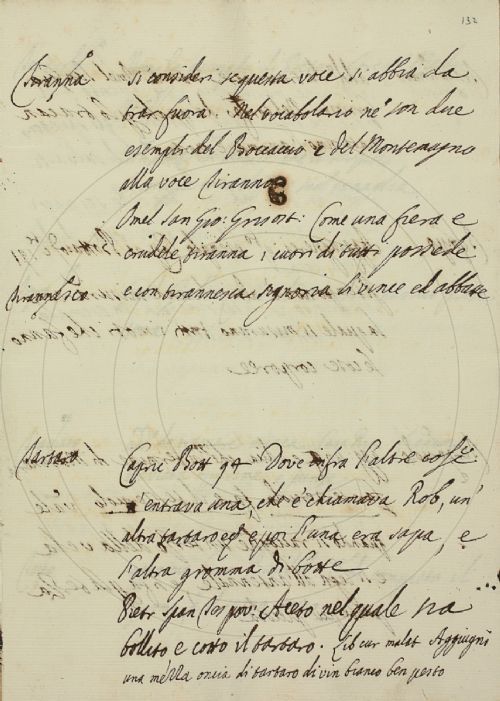 132
Tiranna si consideri se questa voce si abbia da
trar fuora. Nel vocabolario ne son due
esempli del Boccaccio e del Montemagno
alla voce Tiranno
Omel San Gio: Grisost: Come una fiera e
crudele tiranna i cuori di tutti possiede
Tirannesco e con tirannesca signoria li vince ed abbatte
Tartaro Capric Bott 94 Dove infra l'altre cose
n'entrava una, che è chiamava Rob, un'
altra tartaro e poi l'una era sapa, e
l'altra gromma di botte
Pietr Span Tes pov: Aceto nel quale sia
bollito e cotto il tartaro. Lib cur malat Aggiugni
una mezza oncia di tartaro di vin bianco ben pesto